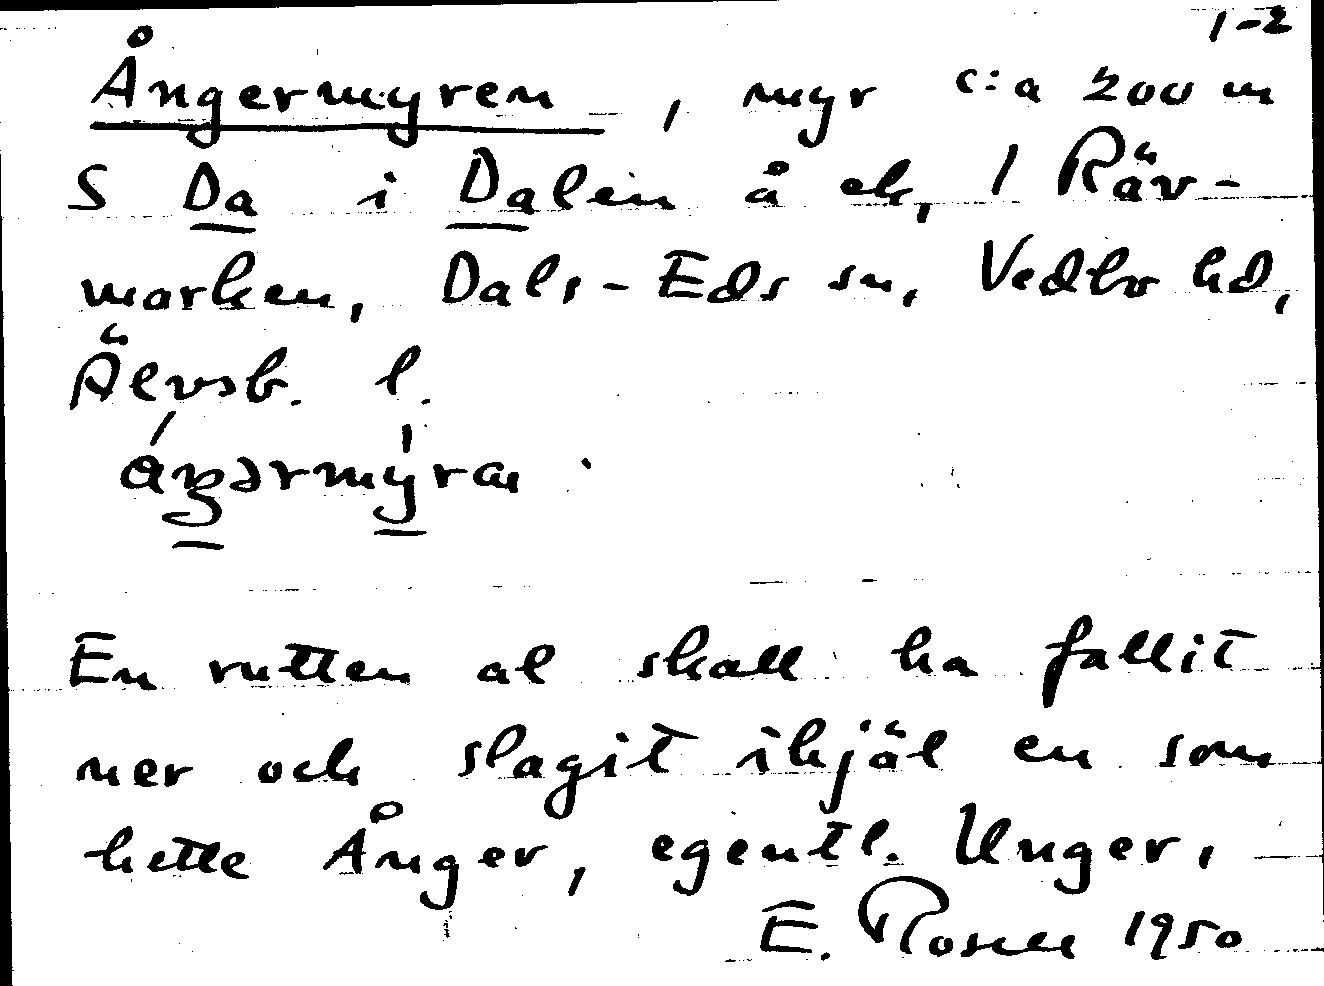 1-2
Ångermyren, myr c:a 200 m
S Da i Dalen å ek, 1 Räv-
marken, Dals-Eds sn, Vedbo hd,
Älvsb. l.
áŋərmy̍ra
En rutten al skall ha fallit
ner och slagit ihjäl en som
hette Ånger, egentl. Unger.
E. Rosell 1950